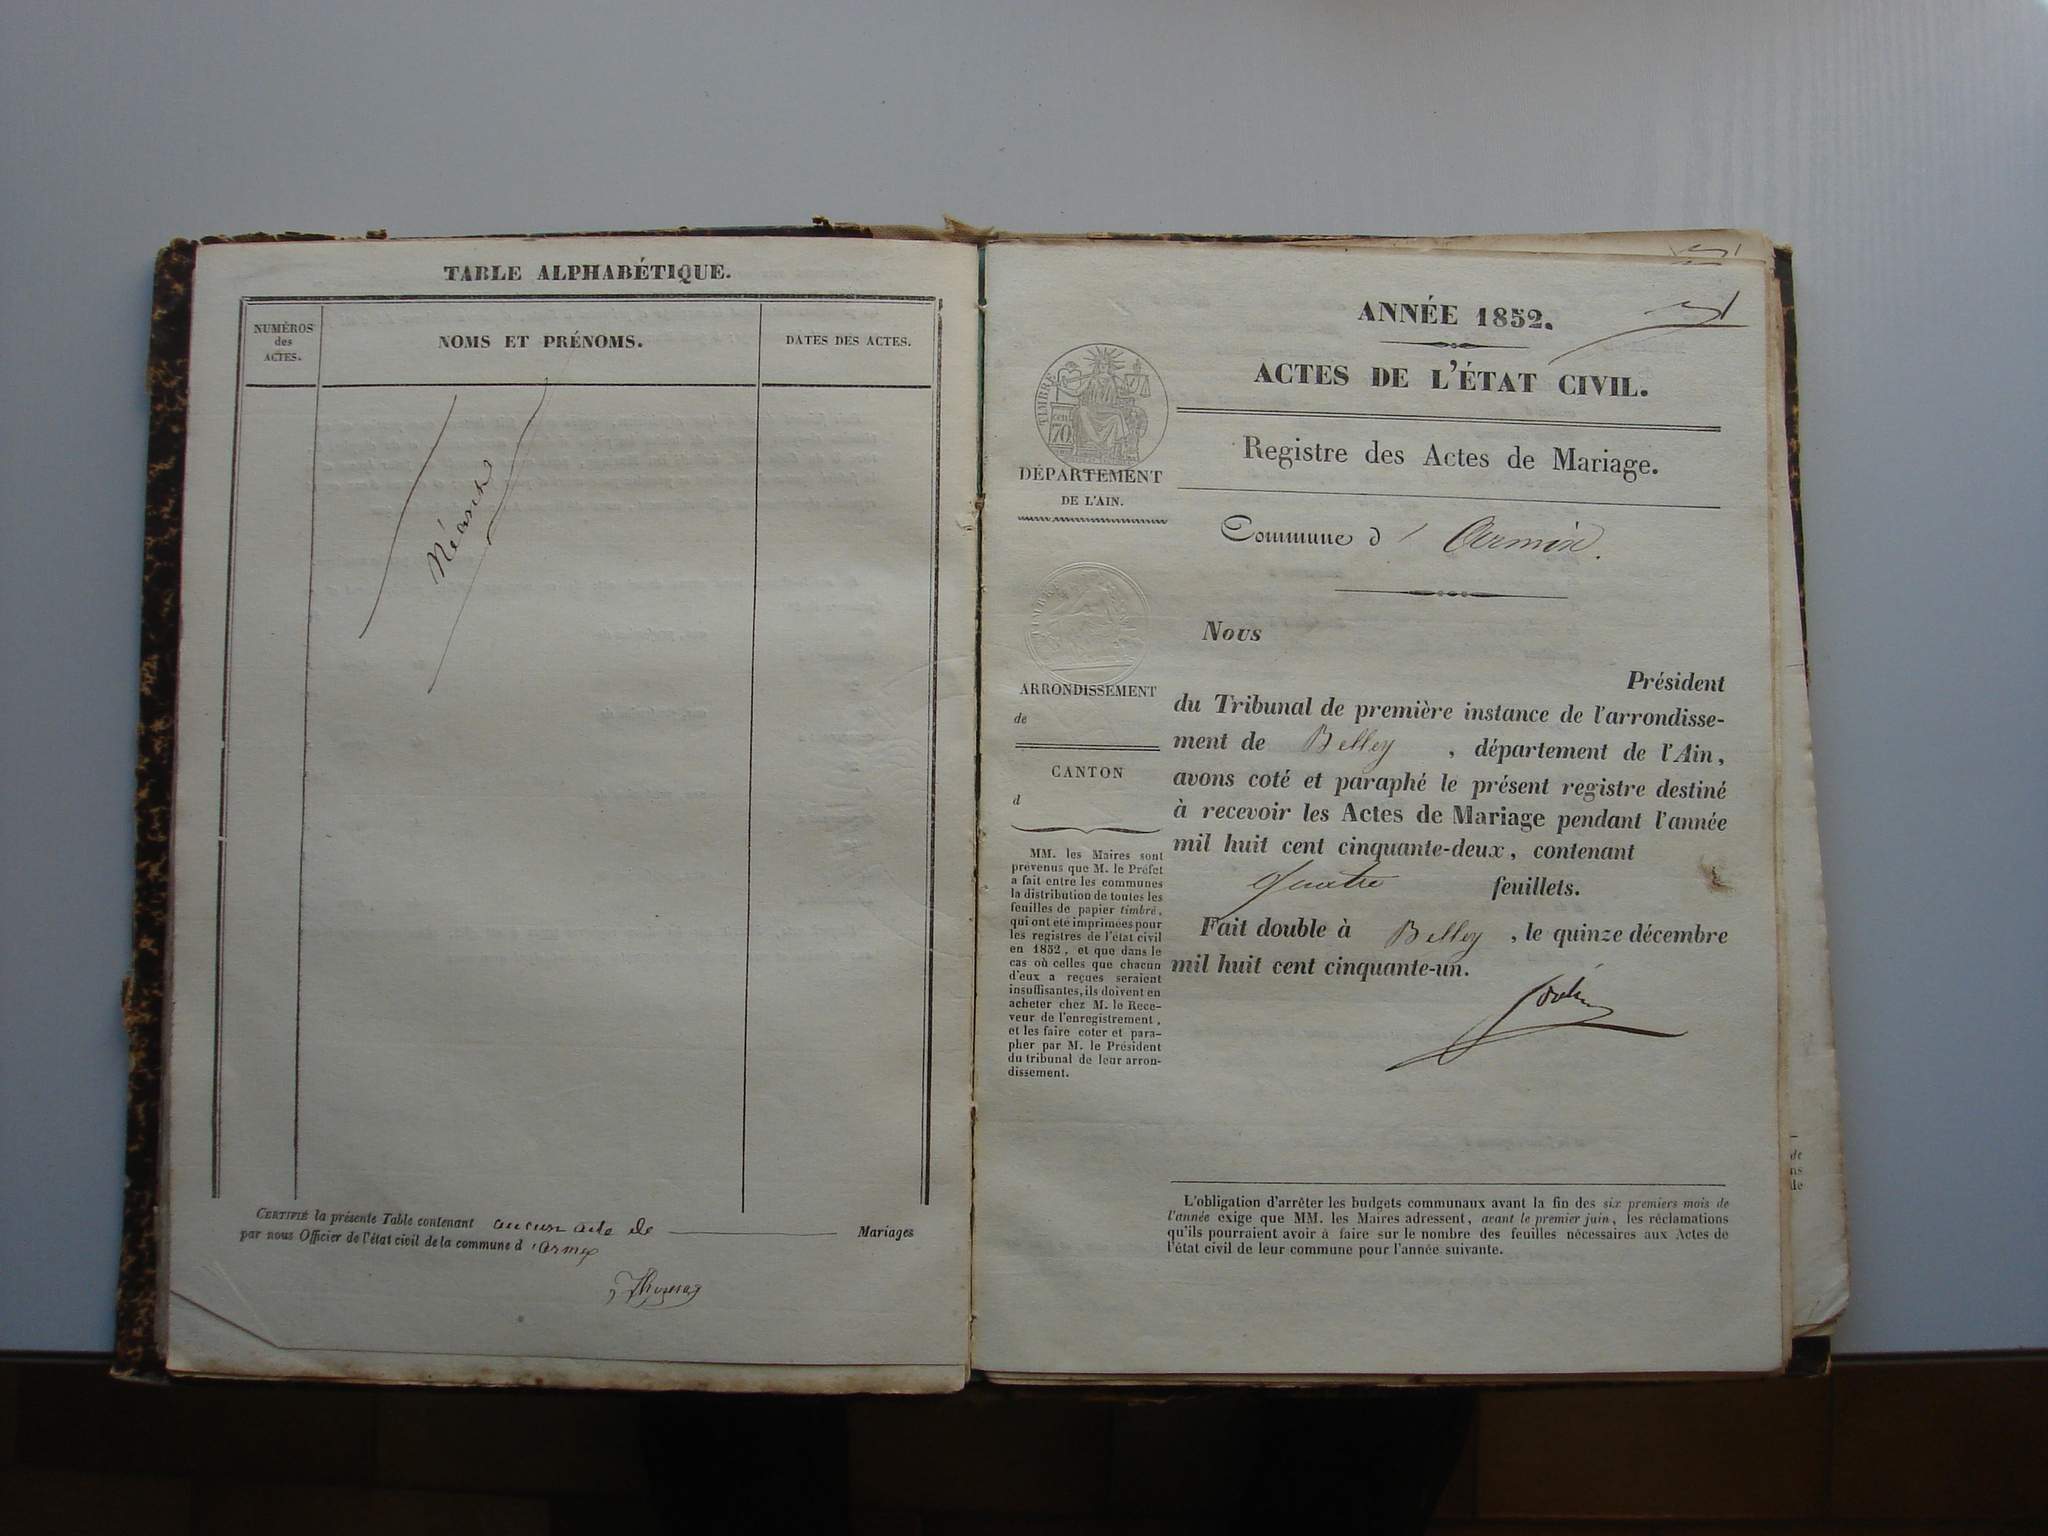 TABLE ALPHABÉTIQUE.
NUMÉROS
des
ACTES.
NOMS ET PRÉNOMS.
DATES DES ACTES.
Néant
CERTIFIÉ la présente Table contenant aucun acte de Mariages
par nous Officier de l'état civil de la commune d'armix
ANNÉE 1852.
ACTES DE L'ÉTAT CIVIL.
Registre des Actes de Mariage.
TIMBRE
cen
70
DÉPARTEMENT
DE L'AIN.
Commune d' Armix.
TIMBRE
ARRONDISSEMENT
de
CANTON
d
MM. les Maires sont
prévenus que M. le Préfet
a fait entre les communes
la distribution de toutes les
feuilles de papier timbré,
qui ont été imprimées pour
les registres de l'état civil
en 1852, et que dans le
cas où celles que chacun
d'eux a reçues seraient
insuffisantes, ils doivent en
acheter chez M. le Rece-
veur de l'enregistrement,
et les faire coter et para-
pher par M. le Président
du tribunal de leur arron-
dissement.
Nous
Président
du Tribunal de première instance de l'arrondisse-
ment de Belley, département de l'Ain,
avons coté et paraphé le présent registre destiné
à recevoir les Actes de Mariage pendant l'année
mil huit cent cinquante-deux, contenant
quatre feuillets.
Fait double à Belley, le quinze décembre
mil huit cent cinquante-un.
L'obligation d'arrêter les budgets communaux avant la fin des six premiers mois de
l'année exige que MM. les Maires adressent, avant le premier juin, les réclamations
qu'ils pourraient avoir à faire sur le nombre des feuilles nécessaires aux Actes de
l'état civil de leur commune pour l'année suivante.